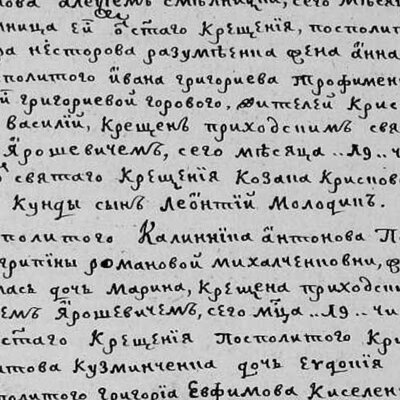 нова алеѯiемъ смѣлницкимъ, сего мѣсяц
мница ей ѿ стаго Крещенїя, посполит
ра нестерова разумѣенка жена анна
политого ївана григориева трофимен
й григориевой горового, жителей Крис
василїй, Крещенъ приходскимъ свя
ярошевичемъ, сего мѣсяца „лд„ ч
святаго Крещенїя Козака Криснов
Кунды сынъ леонтїй Молодик.
политого Калинника антонова П
грипины романовой михалченковни, ж
лась дочь марина, Крещена приходски
емъ ярошевичемъ, сего мца „лд„ чи
стаго Крещенїя Посполитого Кри
итова Кузминченка дочь Еѵдокїя
политого григорїа Евфимова Киселен